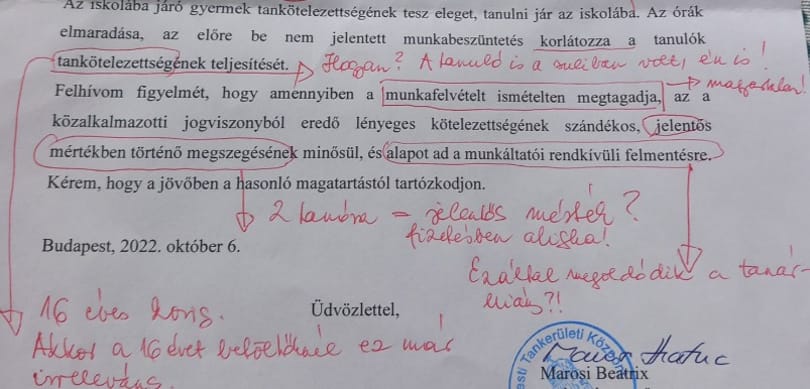 Az iskolába járó gyermek tankötelezettségének tesz eleget, tanulni jár az iskolába. Az órák
elmaradása, az előre be nem jelentett munkabeszüntetés korlátozza a tanulók
tankötelezettségének teljesítését. Hogyan? A tanuló is a suliban volt, én is!
Felhívom figyelmét, hogy amennyiben a munkafelvételt ismételten megtagadja, az a
közalkalmazotti jogviszonyból eredő lényeges kötelezettségének szándékos, jelentős
mértékben történő megszegésének minősül, és alapot ad a munkáltatói rendkívüli felmentésre.
Kérem, hogy a jövőben a hasonló magatartástól tartózkodjon.
2 tanóra = jelentős mérték?
fizetésben aligha!
Budapest, 2022. október 6.
Ezáltal megoldódik a tanár-
hiány?!
16 éves korig.
Üdvözlettel,
Akkor a 16 évet betöltőknél ez már
irreleváns.
Tankerületi Közpon
Marosi Beatrix